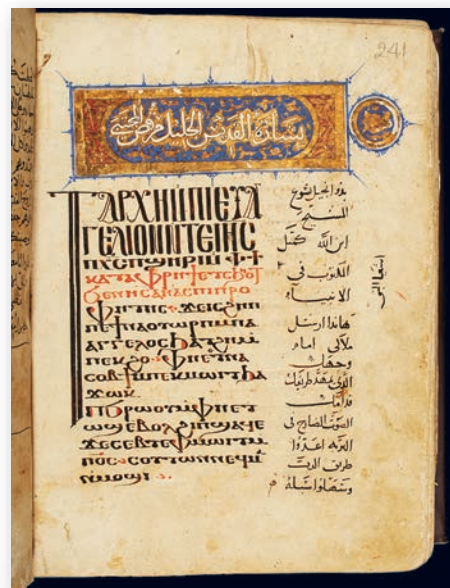 241
بشارة القديس الجليل مرقس
ⲦⲀⲢⲬⲎⲘⲠⲒⲈⲨⲀ
ⲄⲈⲖⲒⲞⲚⲚⲦⲈⲒⲎⲤ
ⲠⲬⲤⲠϢⲎⲢⲒⲘⲪϮ
ⲕⲁⲧⲁⲫⲣⲏϯⲉⲧⲥϧⲏⲟⲩⲧ
ϧⲉⲛⲏⲥⲁⲏⲁⲥⲡⲓⲡⲣⲟ
ⲫⲏⲧⲏⲥ ϫⲉⲓⲥϩⲏⲡⲡⲉ
ϯⲛⲁⲟⲩⲱⲣⲡⲙⲡⲁ
ⲁⲅⲅⲉⲗⲟⲥϧⲁϫⲉⲛ
ⲡⲉⲕϩⲟ ⲫⲏⲉⲧⲛⲁ
ⲥⲟⲃϯⲙⲡⲉⲕⲙⲱⲓⲧϧⲁ
ϫⲱⲕ
ⲡϧⲣⲱⲟⲩⲙⲫⲏⲉⲧ
ⲱϣⲉⲃⲟⲗϩⲓⲡϣⲁϥⲉ
ϫⲉⲥⲉⲃⲧⲉⲫⲙⲱⲓⲧⲙ
ⲡⲟⲥ ⲥⲟⲩⲧⲱⲛⲛⲉϥⲙⲁ
ⲙⲙⲟϣⲓ
بدو انجيل يسوع
المسيح
ابن الله كمثل
المكتوب في
الانبياء
هاندا ارسل
ملاكي امام
وجهك
الذي يمهد طريقك
قدامك
الصوت الصارخ في
البرية اعدوا
طريق الرب
وسهلوا سبله